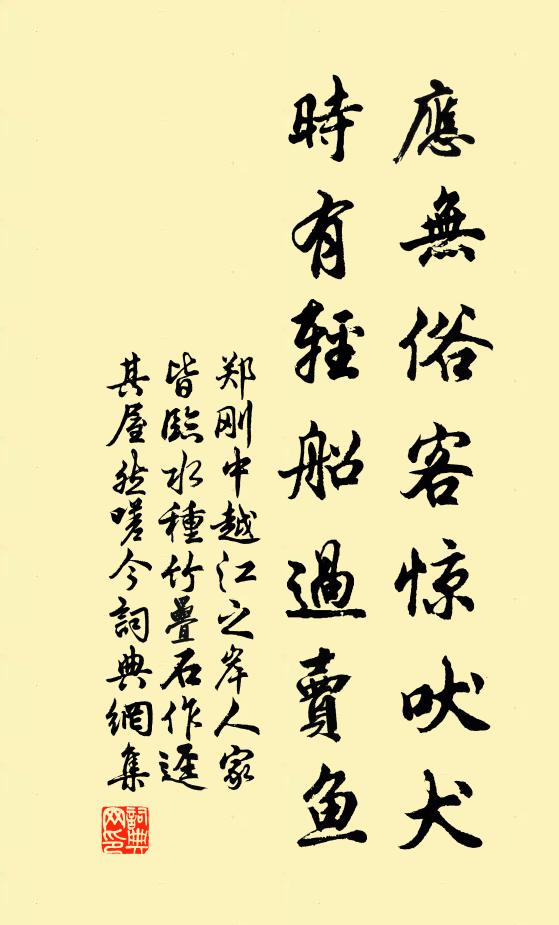 應無俗客惊吠犬
時有輕船過賣魚
郑刚中越江之岸人家
皆臨水種竹疊石作逕
其屋然嗟今詞典網集
詞典网印